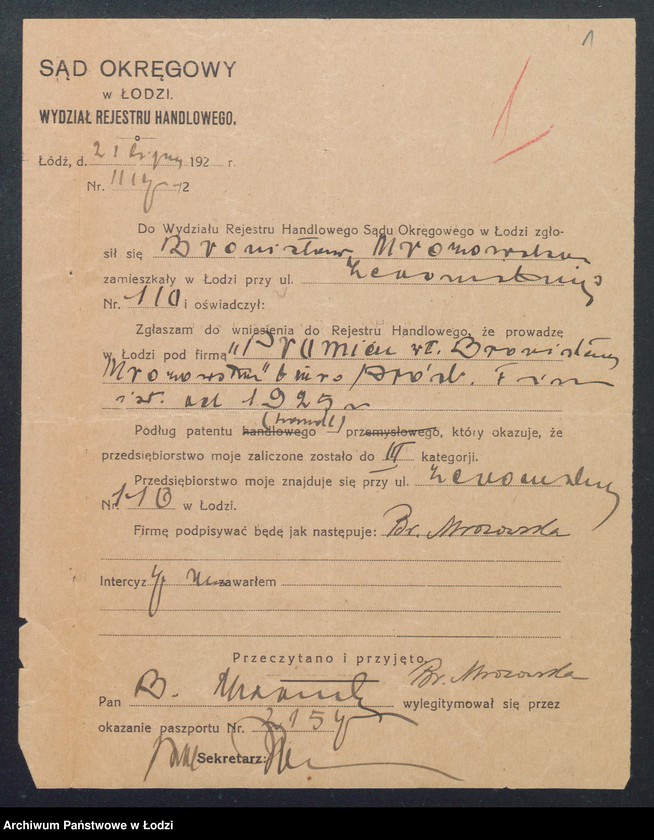 1
SĄD OKRĘGOWY
w ŁODZI.
WYDZIAŁ REJESTRU HANDLOWEGO.
1
Łódź, d. 21 192 r.
Nr. 2
Do Wydziału Rejestru Handlowego Sądu Okręgowego w Łodzi zgło-
sił się Bronisława Mrozowska
zamieszkały w Łodzi przy ul. Żeromskiego
Nr. 110 i oświadczył:
Zgłaszam do wniesienia do Rejestru Handlowego, że prowadzę
w Łodzi pod firmą „Promień wł. Bronisława
Mrozowska" biuro pośr. Firma
ist. od 1925 r
(handl)
Podług patentu handlowego – przemysłowego, który okazuje, że
przedsiębiorstwo moje zaliczone zostało do III kategorji.
Przedsiębiorstwo moje znajduje się przy ul. Żeromskiego
Nr. 110 w Łodzi.
Firmę podpisywać będę jak następuje: Br. Mrozowska
Intercyzy nie zawarłem
Przeczytano i przyjęto
Br. Mrozowska
Pan B. Mrozowska wylegitymował się przez
okazanie paszportu Nr. 2154
Sekretarz:
Archiwum Państwowe w Łodzi